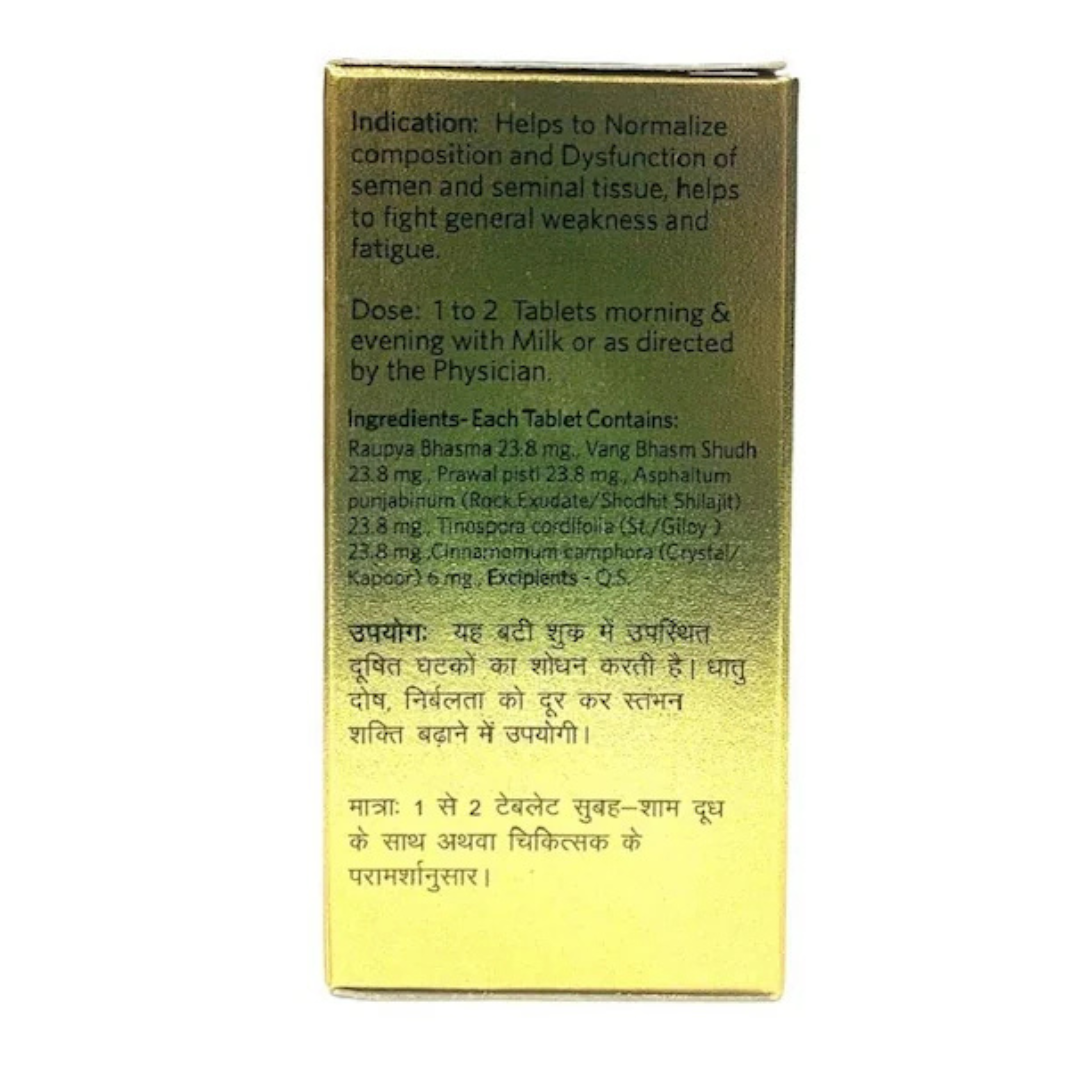 Indication: Helps to Normalize
composition and Dysfunction of
semen and seminal tissue, helps
to fight general weakness and
fatigue.
Dose: 1 to 2 Tablets morning &
evening with Milk or as directed
by the Physician.
Ingredients- Each Tablet Contains:
Raupya Bhasma 23.8 mg., Vang Bhasm Shudh
23.8 mg., Prawal pisti 23.8 mg., Asphaltum
punjabinum (Rock Exudate/Shodhit Shilajit)
23.8 mg., Tinospora cordifolia (St./Giloy )
23.8 mg.,Cinnamomum camphora (Crystal/
Kapoor) 6 mg., Excipients - Q.S.
उपयोगः यह बटी शुक्र में उपस्थित
दूषित घटकों का शोधन करती है। धातु
दोष, निर्बलता को दूर कर स्तंभन
शक्ति बढ़ाने में उपयोगी।
मात्राः 1 से 2 टेबलेट सुबह–शाम दूध
के साथ अथवा चिकित्सक के
परामर्शानुसार।